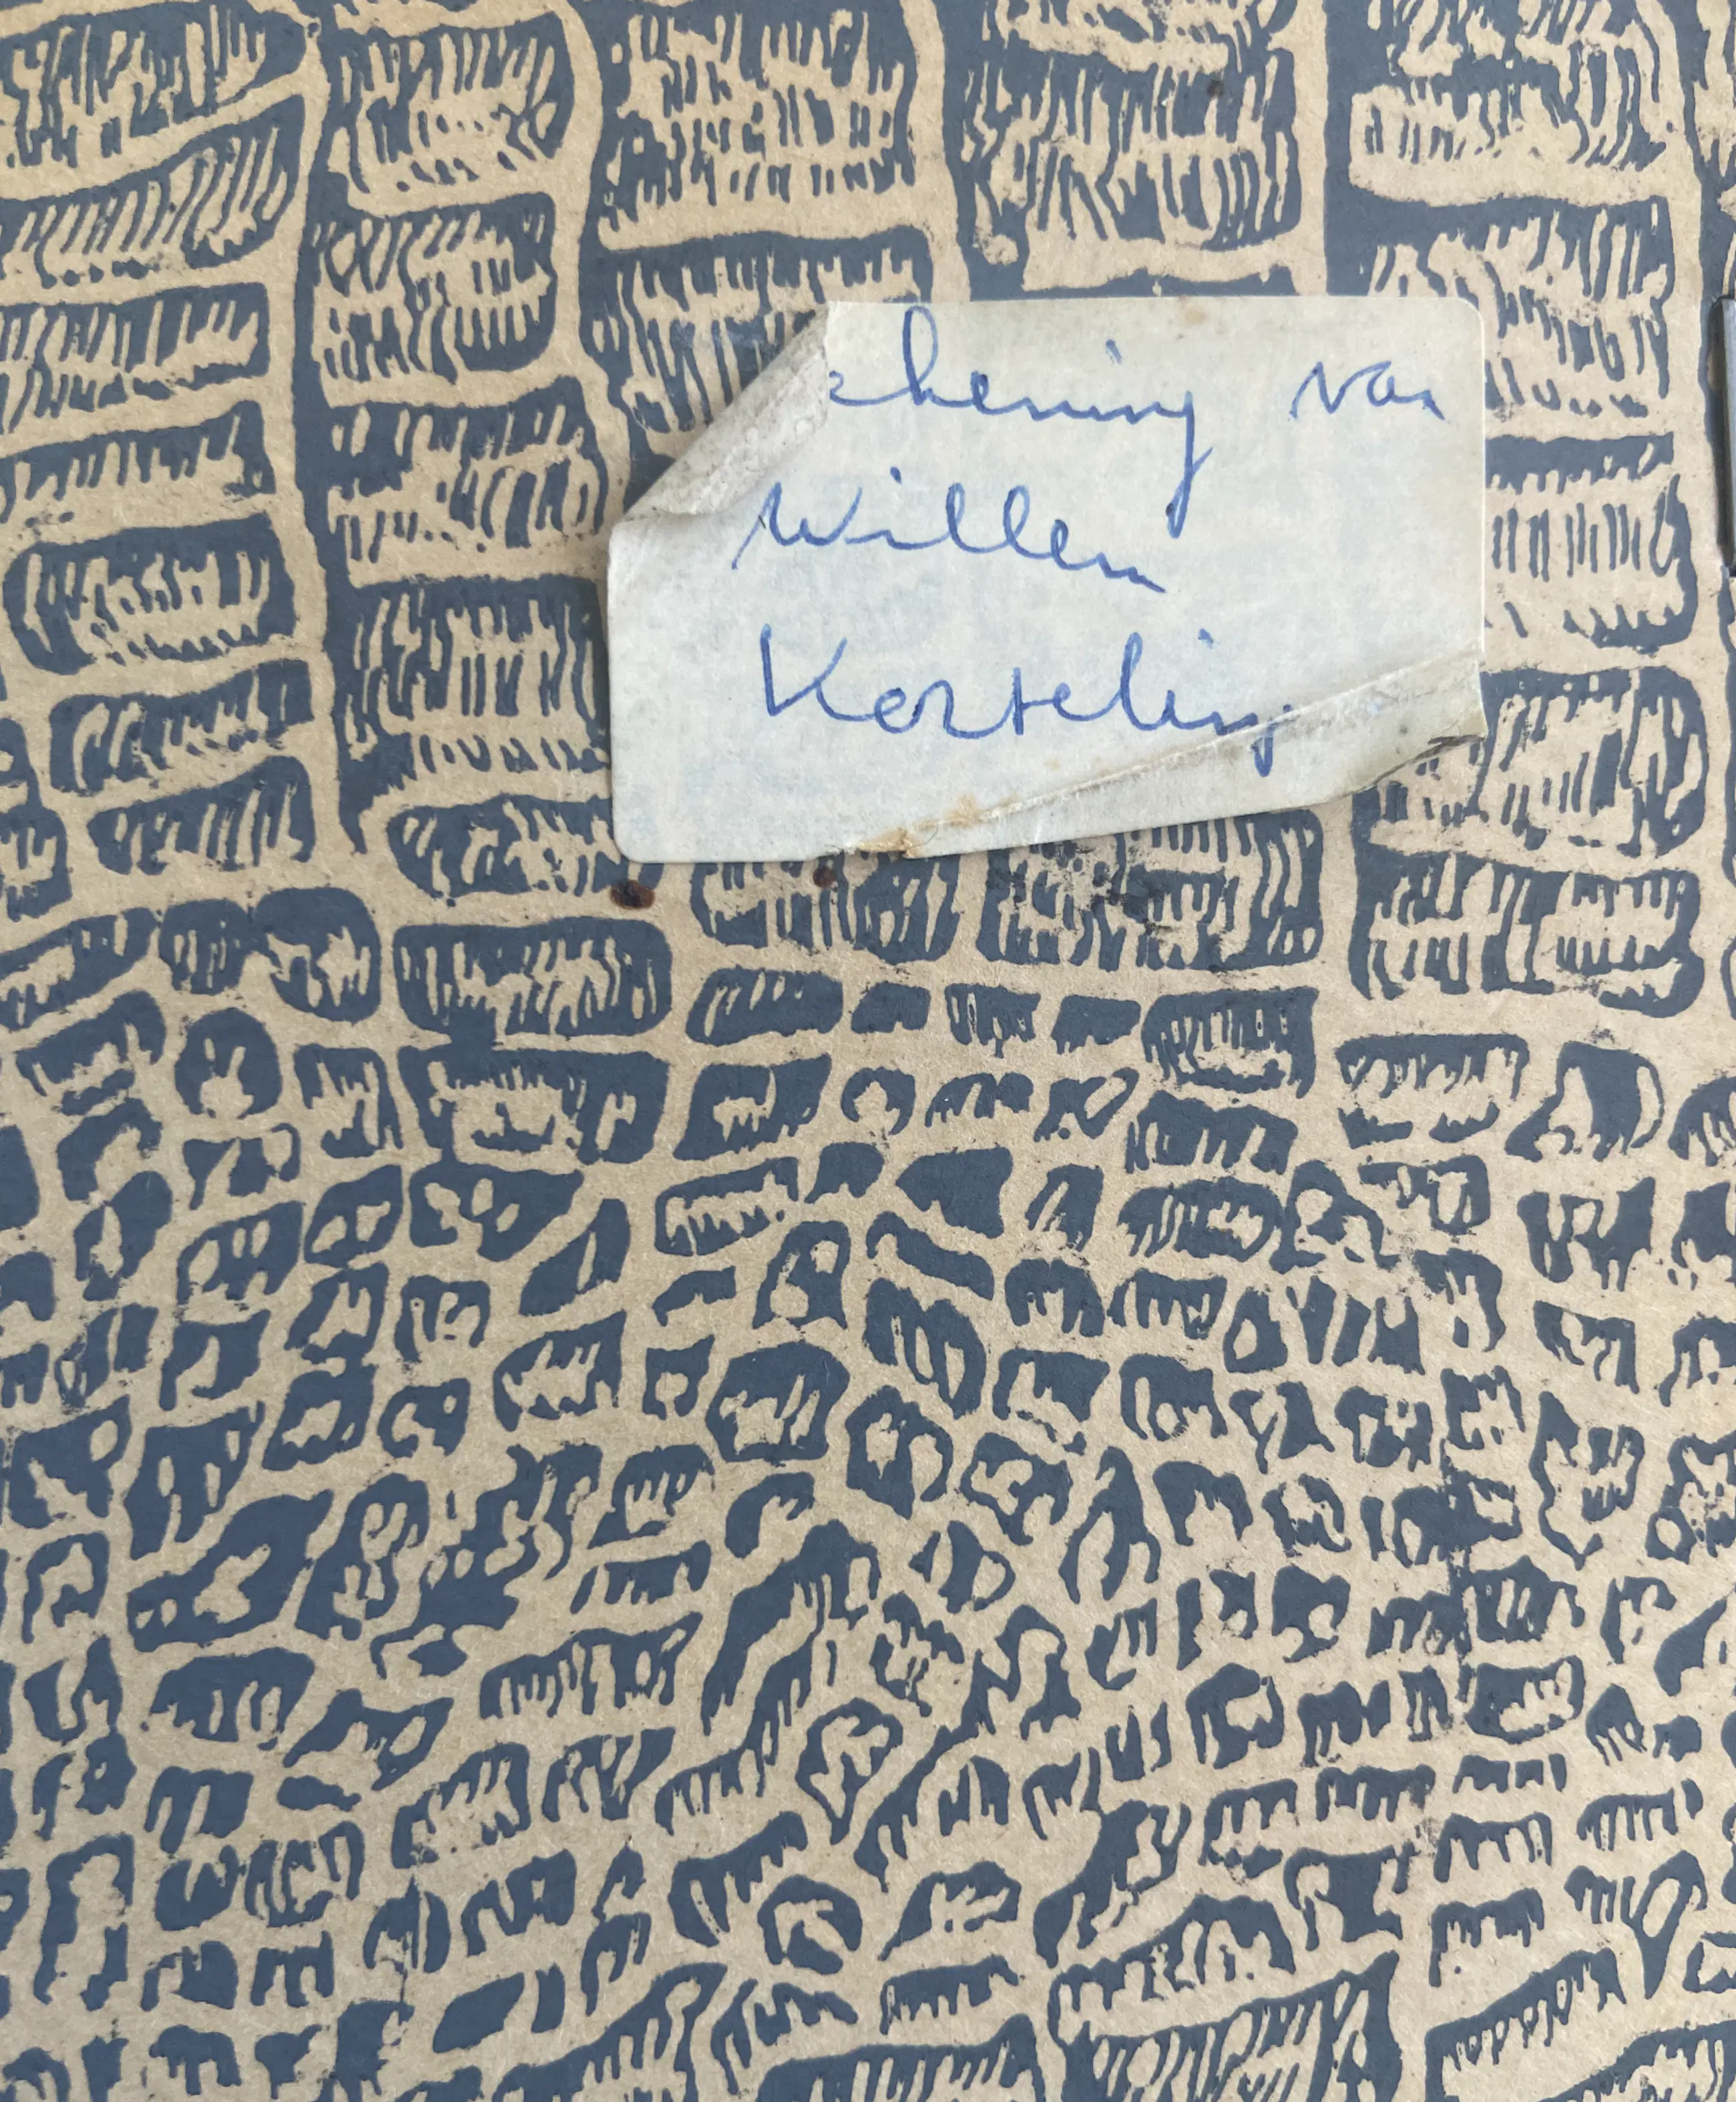 ekening van
Willem
Korteling